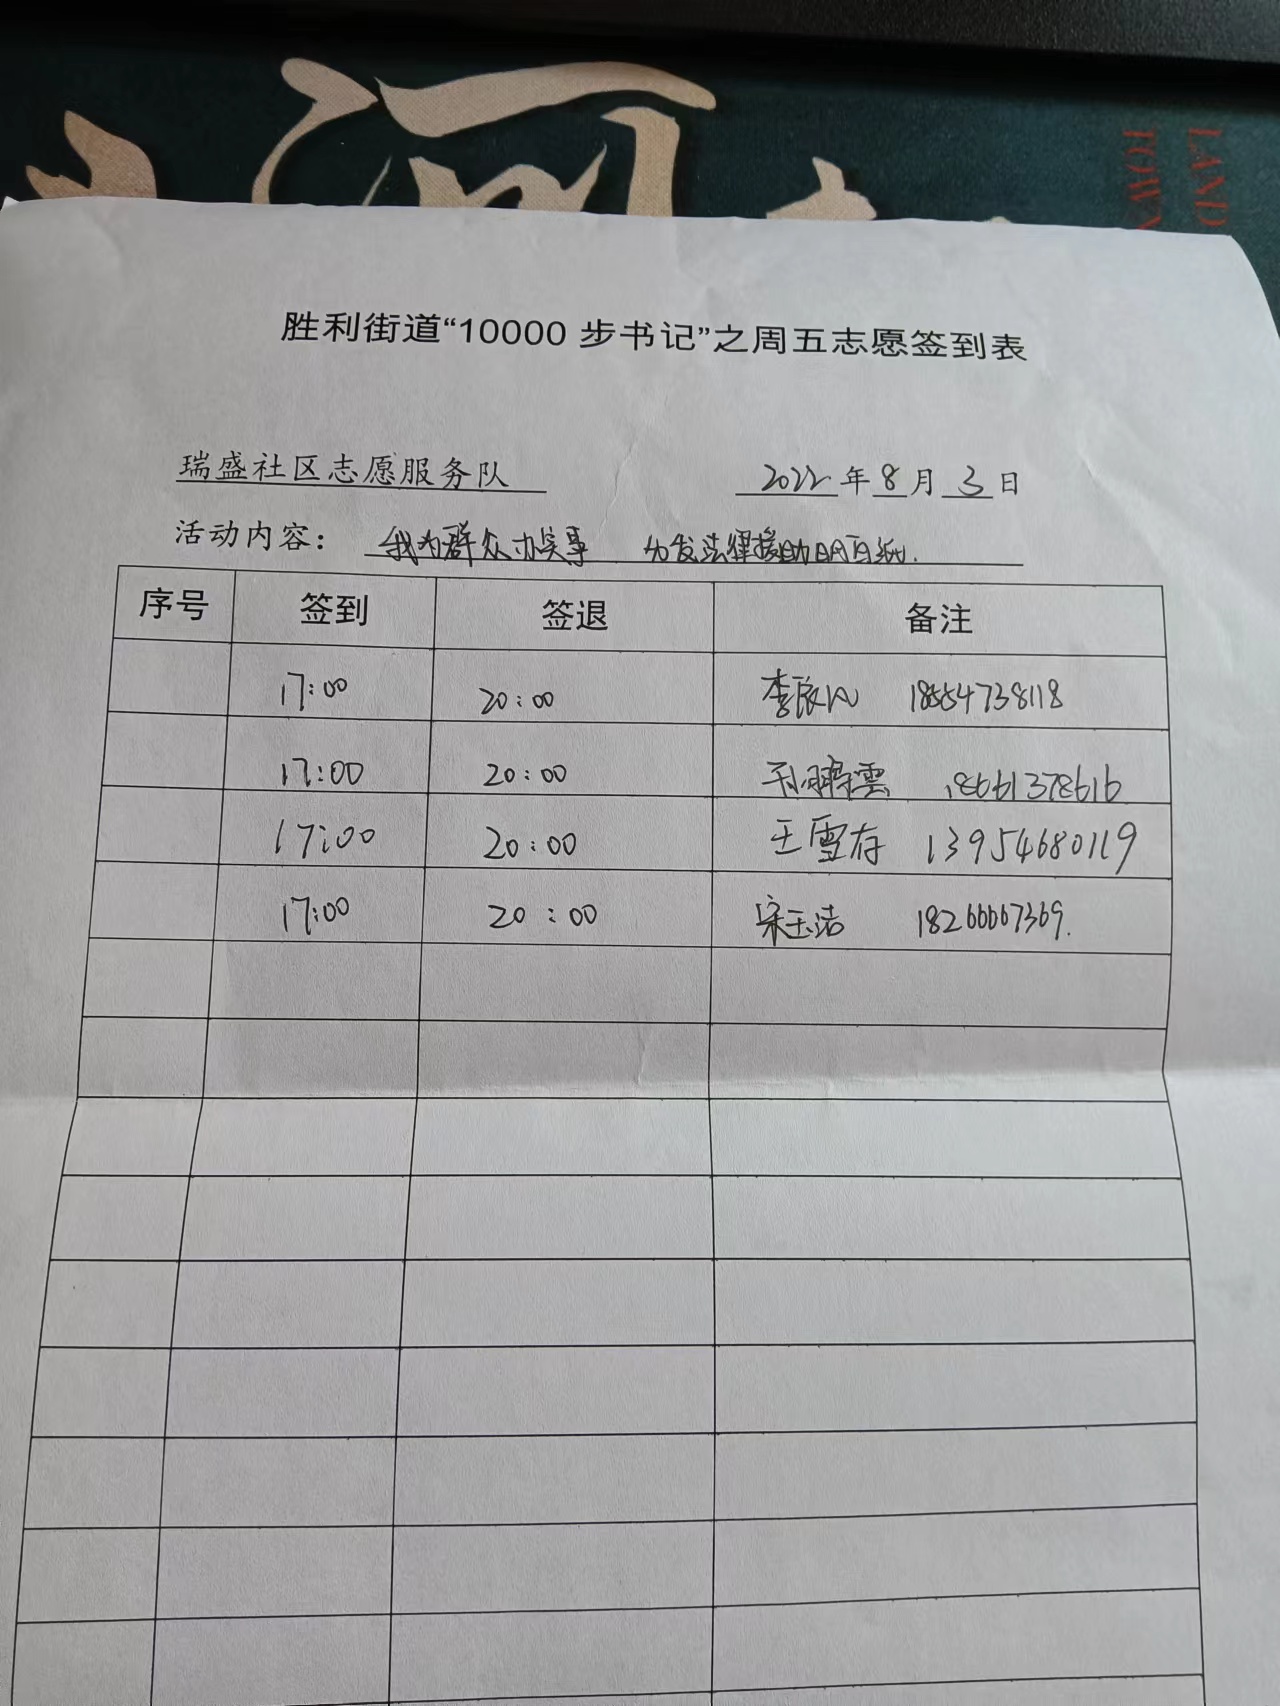 LAND
TOWN
胜利街道“10000 步书记”之周五志愿签到表
瑞盛社区志愿服务队 2022 年 8 月 3 日
活动内容： 我为群众办实事 分发法律援助明白纸.
序号 签到 签退 备注
17:00 20:00 李 18554738118
17:00 20:00 18661378616
17:00 20:00 王雪存 13954680119
17:00 20:00 宋玉洁 18266667369.